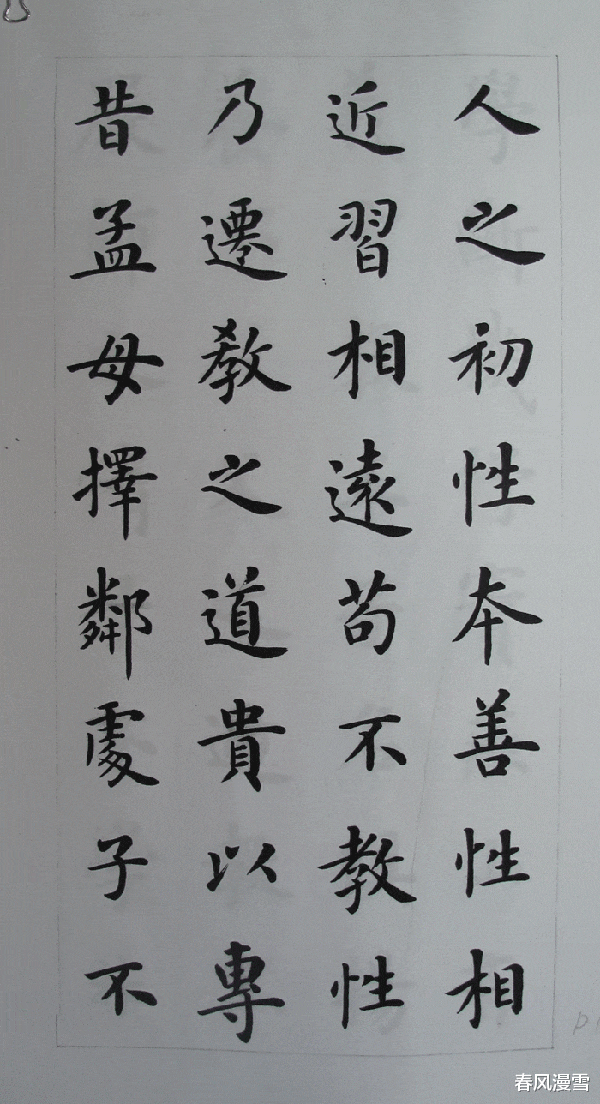 人之初性本善性相
近習相遠苟不教性
乃遷教之道貴以專
昔孟母擇鄰處子不
春风漫雪